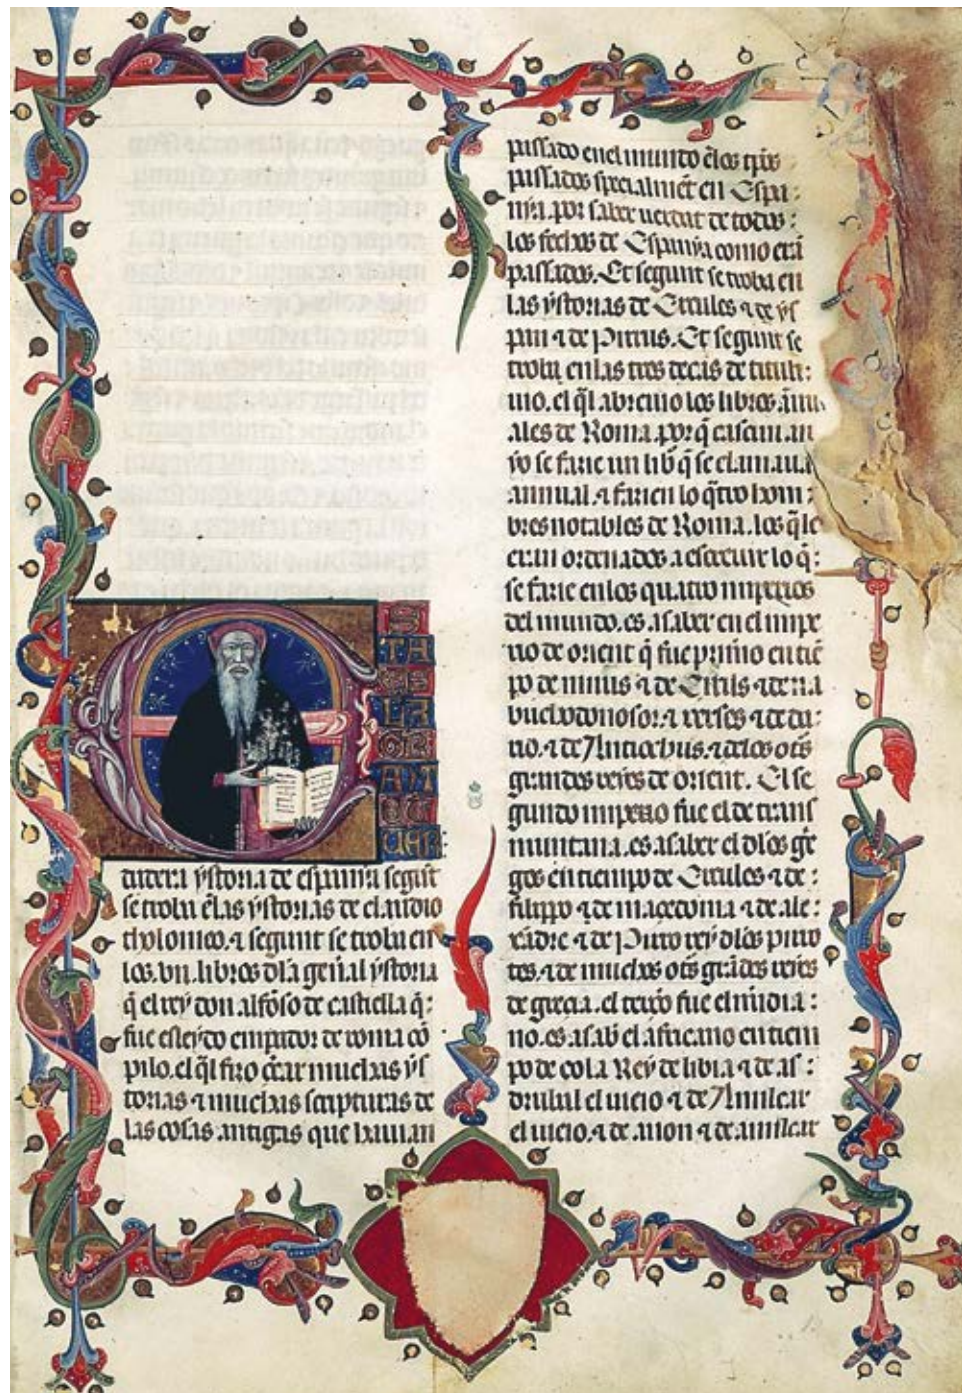 E
STA
ES LA
GRAN
QUE
dadera ystoria de espanya segūt
se troba ēlas ystorias de claudio
tholomeo. ⁊ segunt se troba en
los .vii. libros dla geñal ystoria
q̄ el rey don alfōso de castiella q̄:
fue esleydo empador de roma cō
pilo. el q̄l fizo c̄car muchas ys
torias ⁊ muchas scripturas de
las cosas antigas que hauian
passado enel mundo ēlos tp̄os
passados specialmēt en Espa:
nya. por saber uerdat de todos:
los fechos de Espanya como erā
passados. Et segunt se troba en
las ystorias de Ercules ⁊ de ys
pan ⁊ de Pirrus. Et segunt se
troba en las tres decas de tituli:
uio. el q̄l abreuio los libros ānu
ales de Roma. por q̄ cascun an
yo se fazie un lib̄ q̄ se clamaua
annual. ⁊ fazien lo q̄tro hom:
bres notables de Roma. los q̄le
eran ordenados a escreuir lo q̄:
se fazie en los quatro imperios
del mundo. es a saber en el impe
rio de orient q̄ fue primo en tiē
po de ninus ⁊ de Cirus ⁊ de na
buchodonosor. ⁊ xerses ⁊ de da:
rio. ⁊ de Antiochus. ⁊ delos ot̄s
grandes reyes de orient. El se
gundo imperio fue el de trans
muntana. es a saber el dlos gre
gos en tiempo de Ercules ⁊ de:
filippo ⁊ de macedonia ⁊ de ale:
xādre ⁊ de Pirro rey dlos pirro
tes. ⁊ de muchos ot̄s grādes reyes
de grecia. el terço fue el midia:
no. es a sab̄ el africano en tiem
po de cola Rey de libia ⁊ de as:
drubal el uieio ⁊ de Amilcar
el uieio. ⁊ de anon ⁊ de amilcar